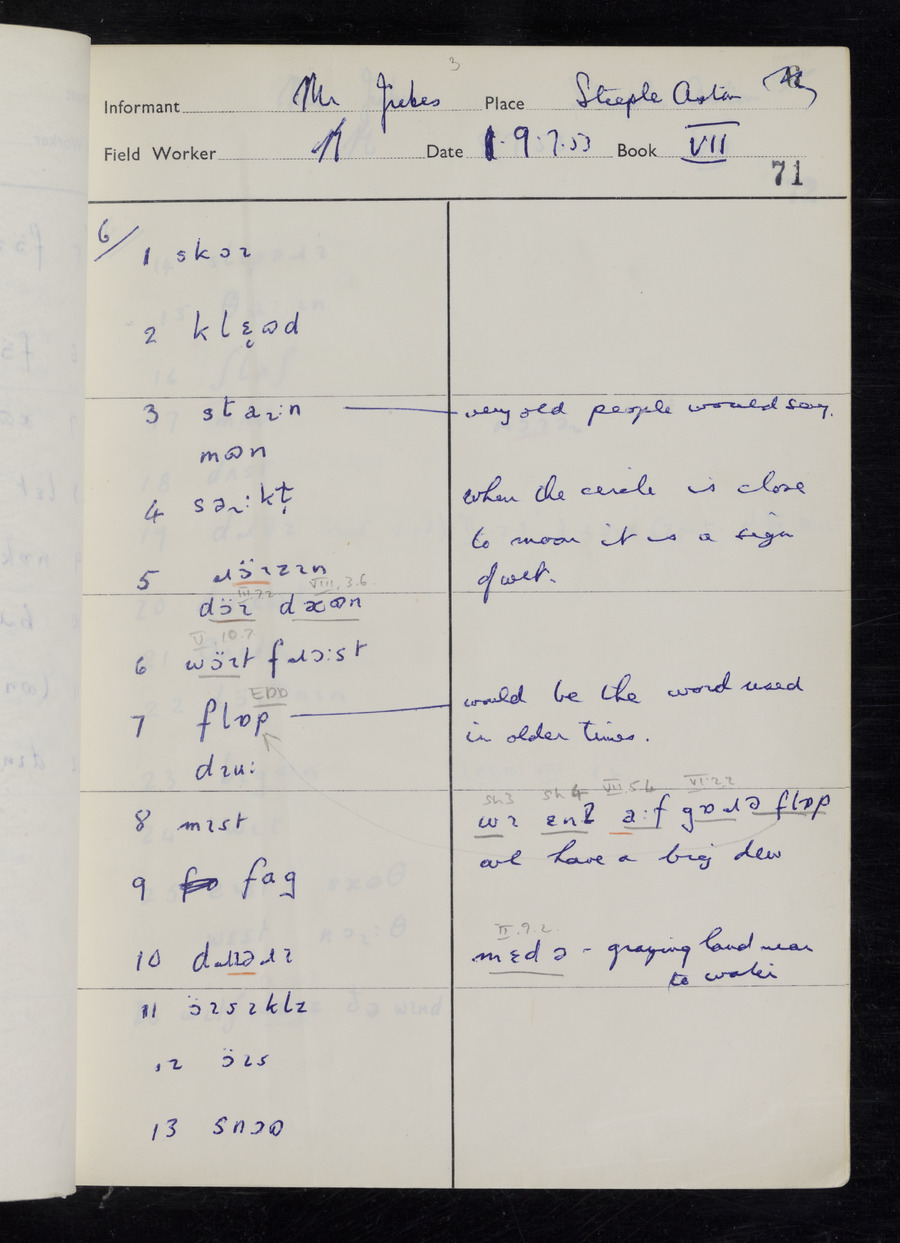 3
Informant Mr Place Steeple Aston
Field Worker Date 1.9.7.53 Book VII
71
6/
1 skɔɪ
2 klɛ̨ɷd
3 staɪ:n very old people would say.
mɷn
4 səɪ:kṭ when the circle is close
to moon it is a sign
of wet.
5 ɹɔ̈ɪzɪn
III.7.2 VIII.3.6.
dɔ̈ɪ dæɷn
V.10.7
6 wɔ̈ɪt fɹɔ:st
EDD
7 flɒp would be the word used
in older times.
dɪu:
sh3 sh4 VII.5.4 VI.2.2
8 mɪst wɪ a:f gɒɹə flɒp
we have a big dew
9 fag
II.9.2.
10 dɹɪəɹɪ mɛdə - grazing land near
to water
11 ɔ̈ɪsɪklz
12 ɔ̈ɪs
13 snɔɷ